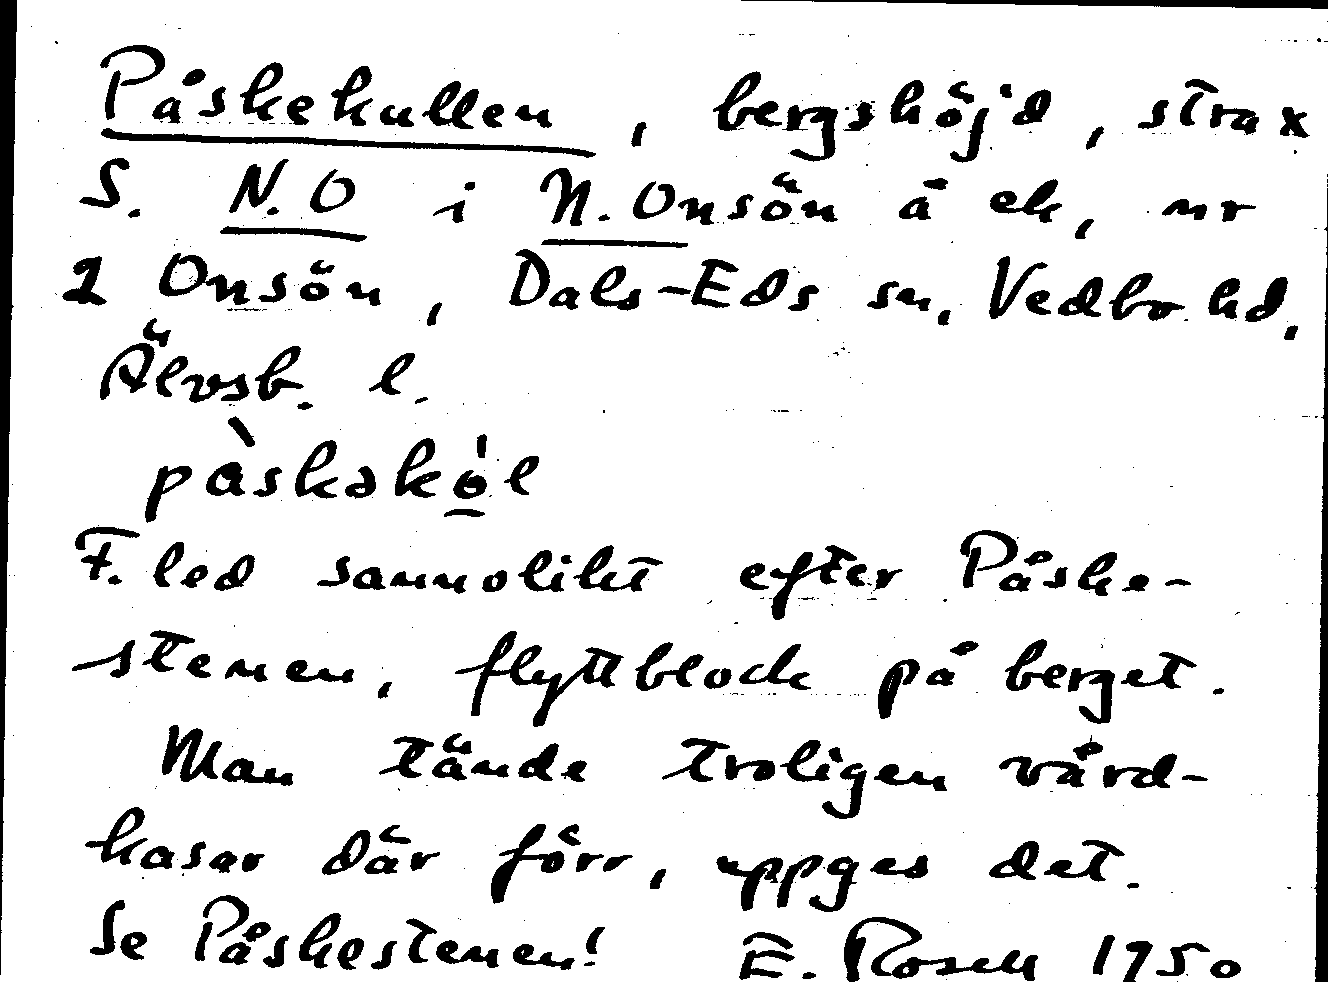 Påskekullen, bergshöjd, strax
S. N.O i N. Onsön å ek, nr
1 Onsön, Dals-Eds sn, Vedbo hd,
Älvsb. l.
F. led sannolikt efter Påske-
stenen, flyttblock på berget.
Man tände troligen vård-
kasar där förr, uppges det.
Se Påskestenen! E. Rosell 1950